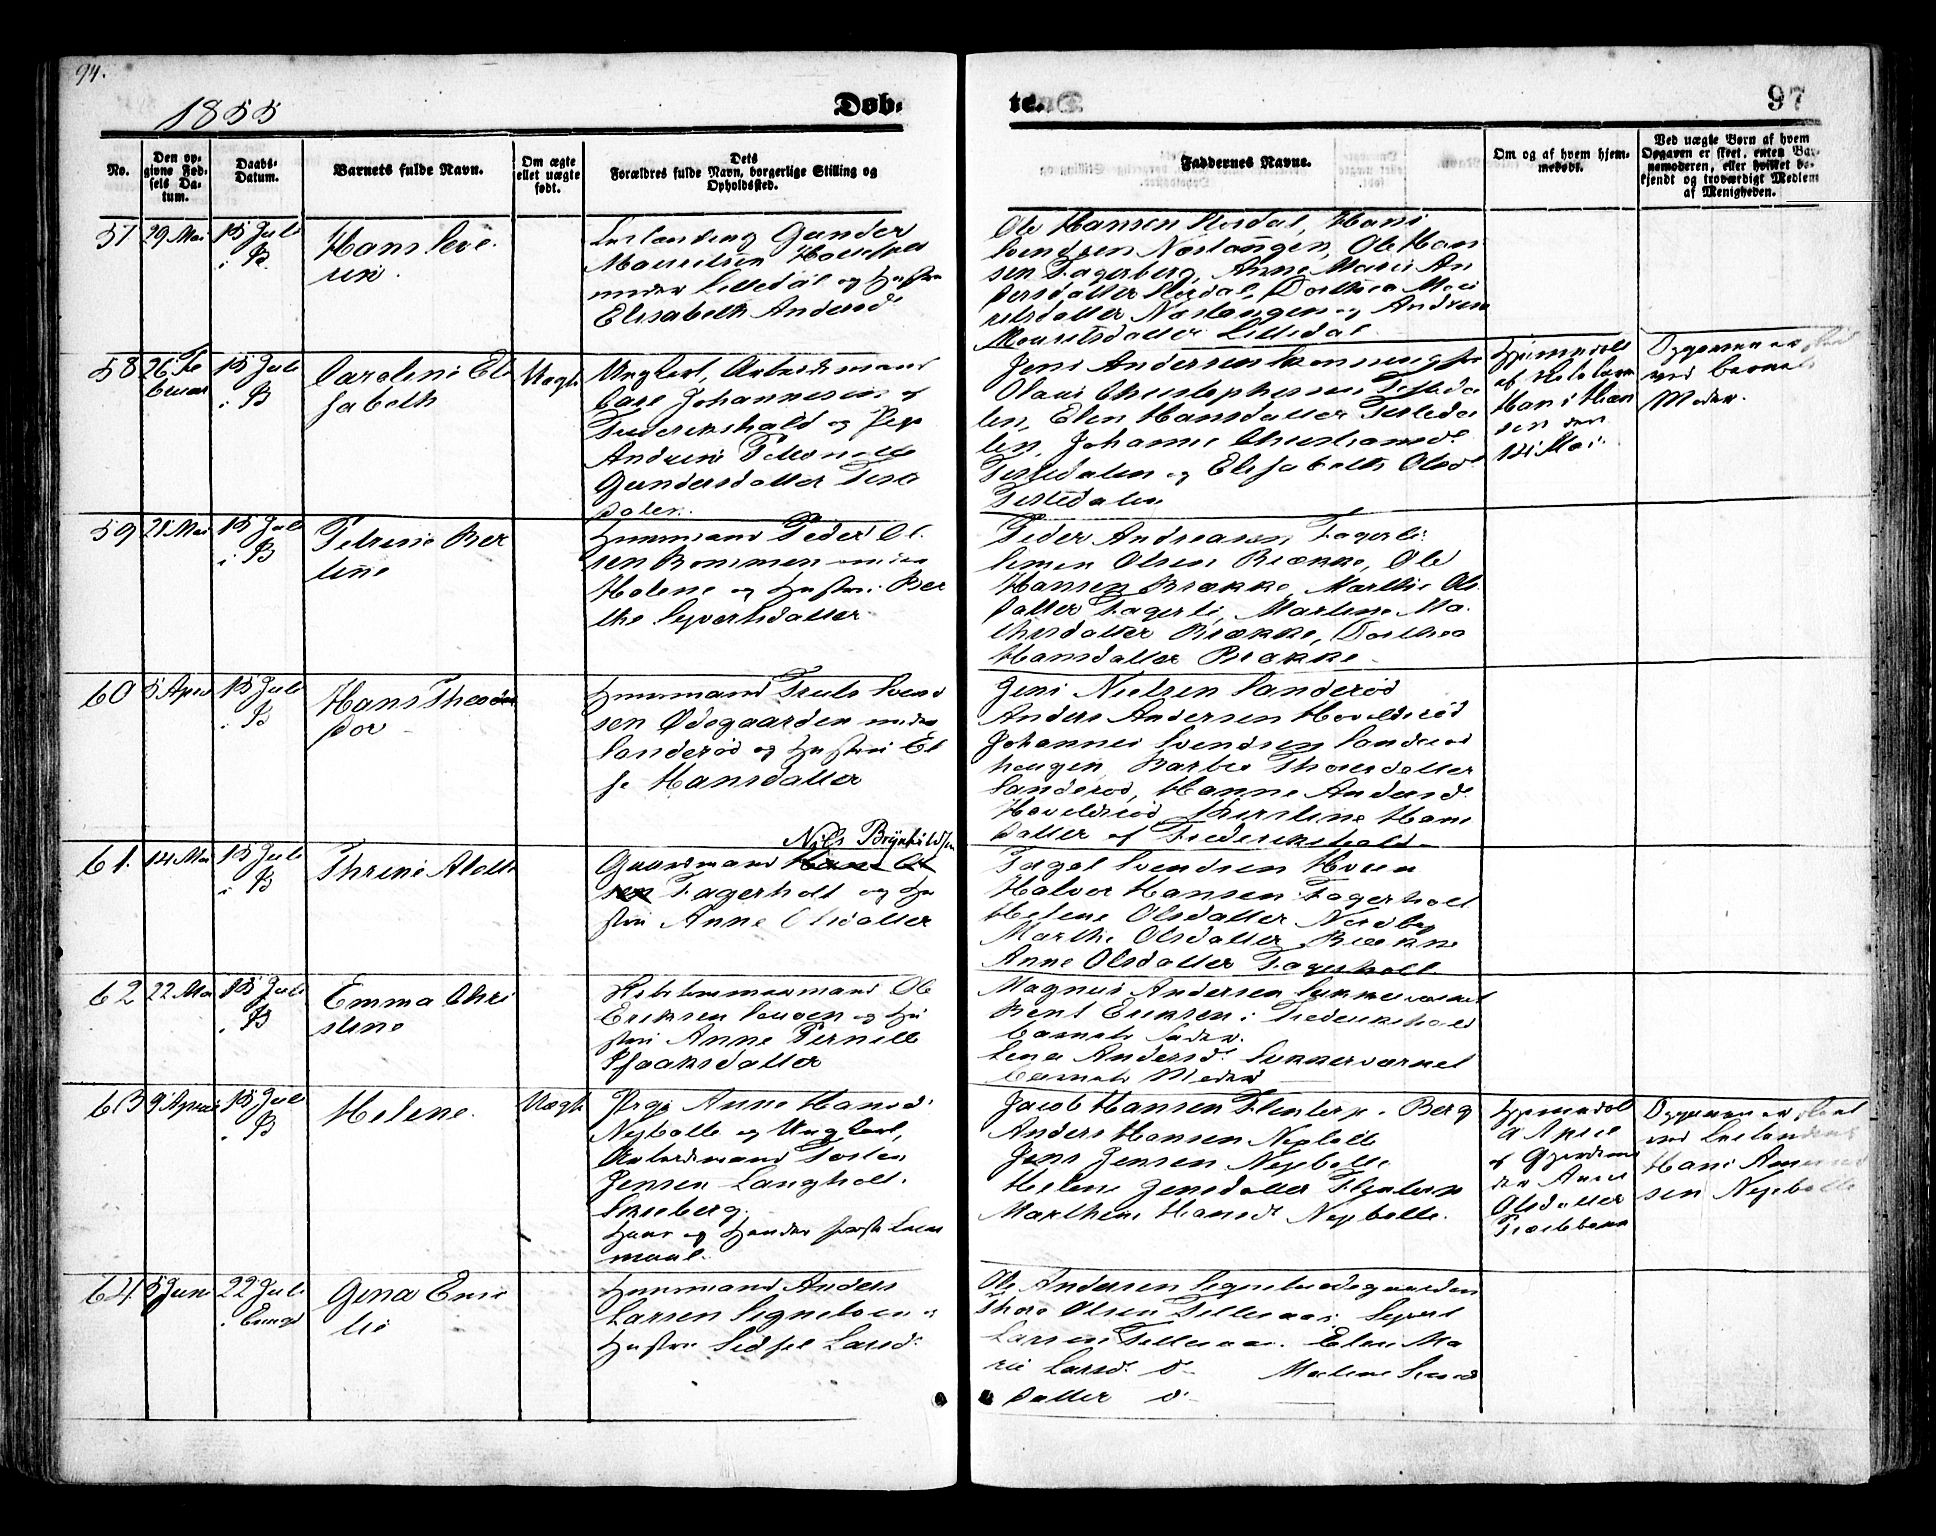 94.
1855
Døb-
te.
97
No.
Den op-
givne Fød-
sels Da-
tum.
Daabs-
Datum.
Barnets fulde Navn.
Om ægte
ellet uægte
født.
Dets
Forældres fulde Navn, borgerlige Stilling og
Opholdssted.
Faddernes Navne.
Om og af hvem hjem-
medøbt.
Ved uægte Børn af hvem
Opgaven er skeet, enten Bar-
nemoderen, eller hvilket be-
kjendt og troværdigt Medlem
af Menigheden.
57
29 Mai
15 Juli
i B.
Hans Seve
rin.
Gunder
Mouritsen
under Lilledal og Hustru
Elisabeth Andersd
Ole Hansen Hansi
Svendsen Næstangen, Ole Han
sen Fagerberg, Anne Marie An
dersdatter Dorthea Mou
ritsdatter Næstangen og Andrine
Mouritsdatter Lilledal.
58
26 Fe
bruar
15 Juli
i B
Caroline Eli
sabeth
Uægte
Ungkarl, Arbeidsmand
Carl Johannesen af
Frederikshald og Pige
Andrine Petronelle
Gundersdatter Tiste
dalen.
Jens Andersen
Olaus Christophersen Tisteda
len, Elen Hansdatter Tisteda
len, Johanne Christiansd.
Tistedalen og Elisabeth Olsd.
Tistedalen
Hjemmedøbt
af Skolelærer
Hans Han
sen den
14 Mai
Opgaven er skeet
ved Barnets
Moder.
59
21 Mai
15 Juli
i B
Petrine Ber
tine
Huusmand Peder Ol
sen Bommen under
Holene og Hustru Ber
the Syvertsdatter
Peder Andreasen Fagerli
Simen Olsen Brække, Ole
Hansen Brække, Marthe Ols
datter Fagerli, Martine Ma
thisdatter Brække, Dorthea
Hansdatter Brække
60
5 April
15 Juli
i B
Hans Theo
dor
Huusmand Truls Svend
sen Ødegaarden under
Sanderød og Hustru El
se Hansdatter
Jens Nielsen Sanderød
Anders Andersen Hovelsrød
Johannes Svendsen Sanderød
haugen, Barbro Thoresdatter
Sanderød, Hanne Andersd.
Hovelsrød Kirstine Hans
datter af Frederikshald
61.
14 Mai
15 Juli
i B
Thrine Alette
Nils Brynhildsen
Gaardmand Hans Ol
sen Fagerholt og Hu
stru Anne Olsdatter
Svendsen
Halvor Hansen Fagerholt
Helene Olsdatter Nordby
Marthe Olsdatter Brække
Anne Olsdatter Fagerholt
62
22 Mai
15 Juli
i B
Emma Chri
stine
Ole
Eriksen og Hu
stru Anne Pernille
Isaaksdatter
Magnus Andersen Sukkerværket
Bernt Eriksen i Frederikshald
Barnets Fader.
Lena Andersd. Sukkerværket
Barnets Moder
63
9 April
15 Juli
i B
Helene.
Uægte
Pige Anne Hansd.
Nexbolle og Ungkarl,
Arbeidsmand Torsten
Jensen Langholt.
Skeberg.
Huns og Hendes første Leier
maal.
Jacob Hansen i Berg
Anders Hansen Nexbolle
Jens Jensen Nexbolle
Helene Jensdatter
Marthine Hansd. Nexbolle.
Hjemmedøbt
9 April
af Gjordemo
der Anne
Olsdatter
Opgaven er skeet
ved
Hans Amund
sen Nexbolle
64
5 Juni
22 Juli
i
Gina Emi
lie
Huusmand Anders
Larsen Signeboen og
Hustru Sidsel Larsd.
Ole Andersen
Thore Olsen Tellenæs, Syvert
Larsen Tellenæs. Elen Ma
rie Larsd. do
datter do